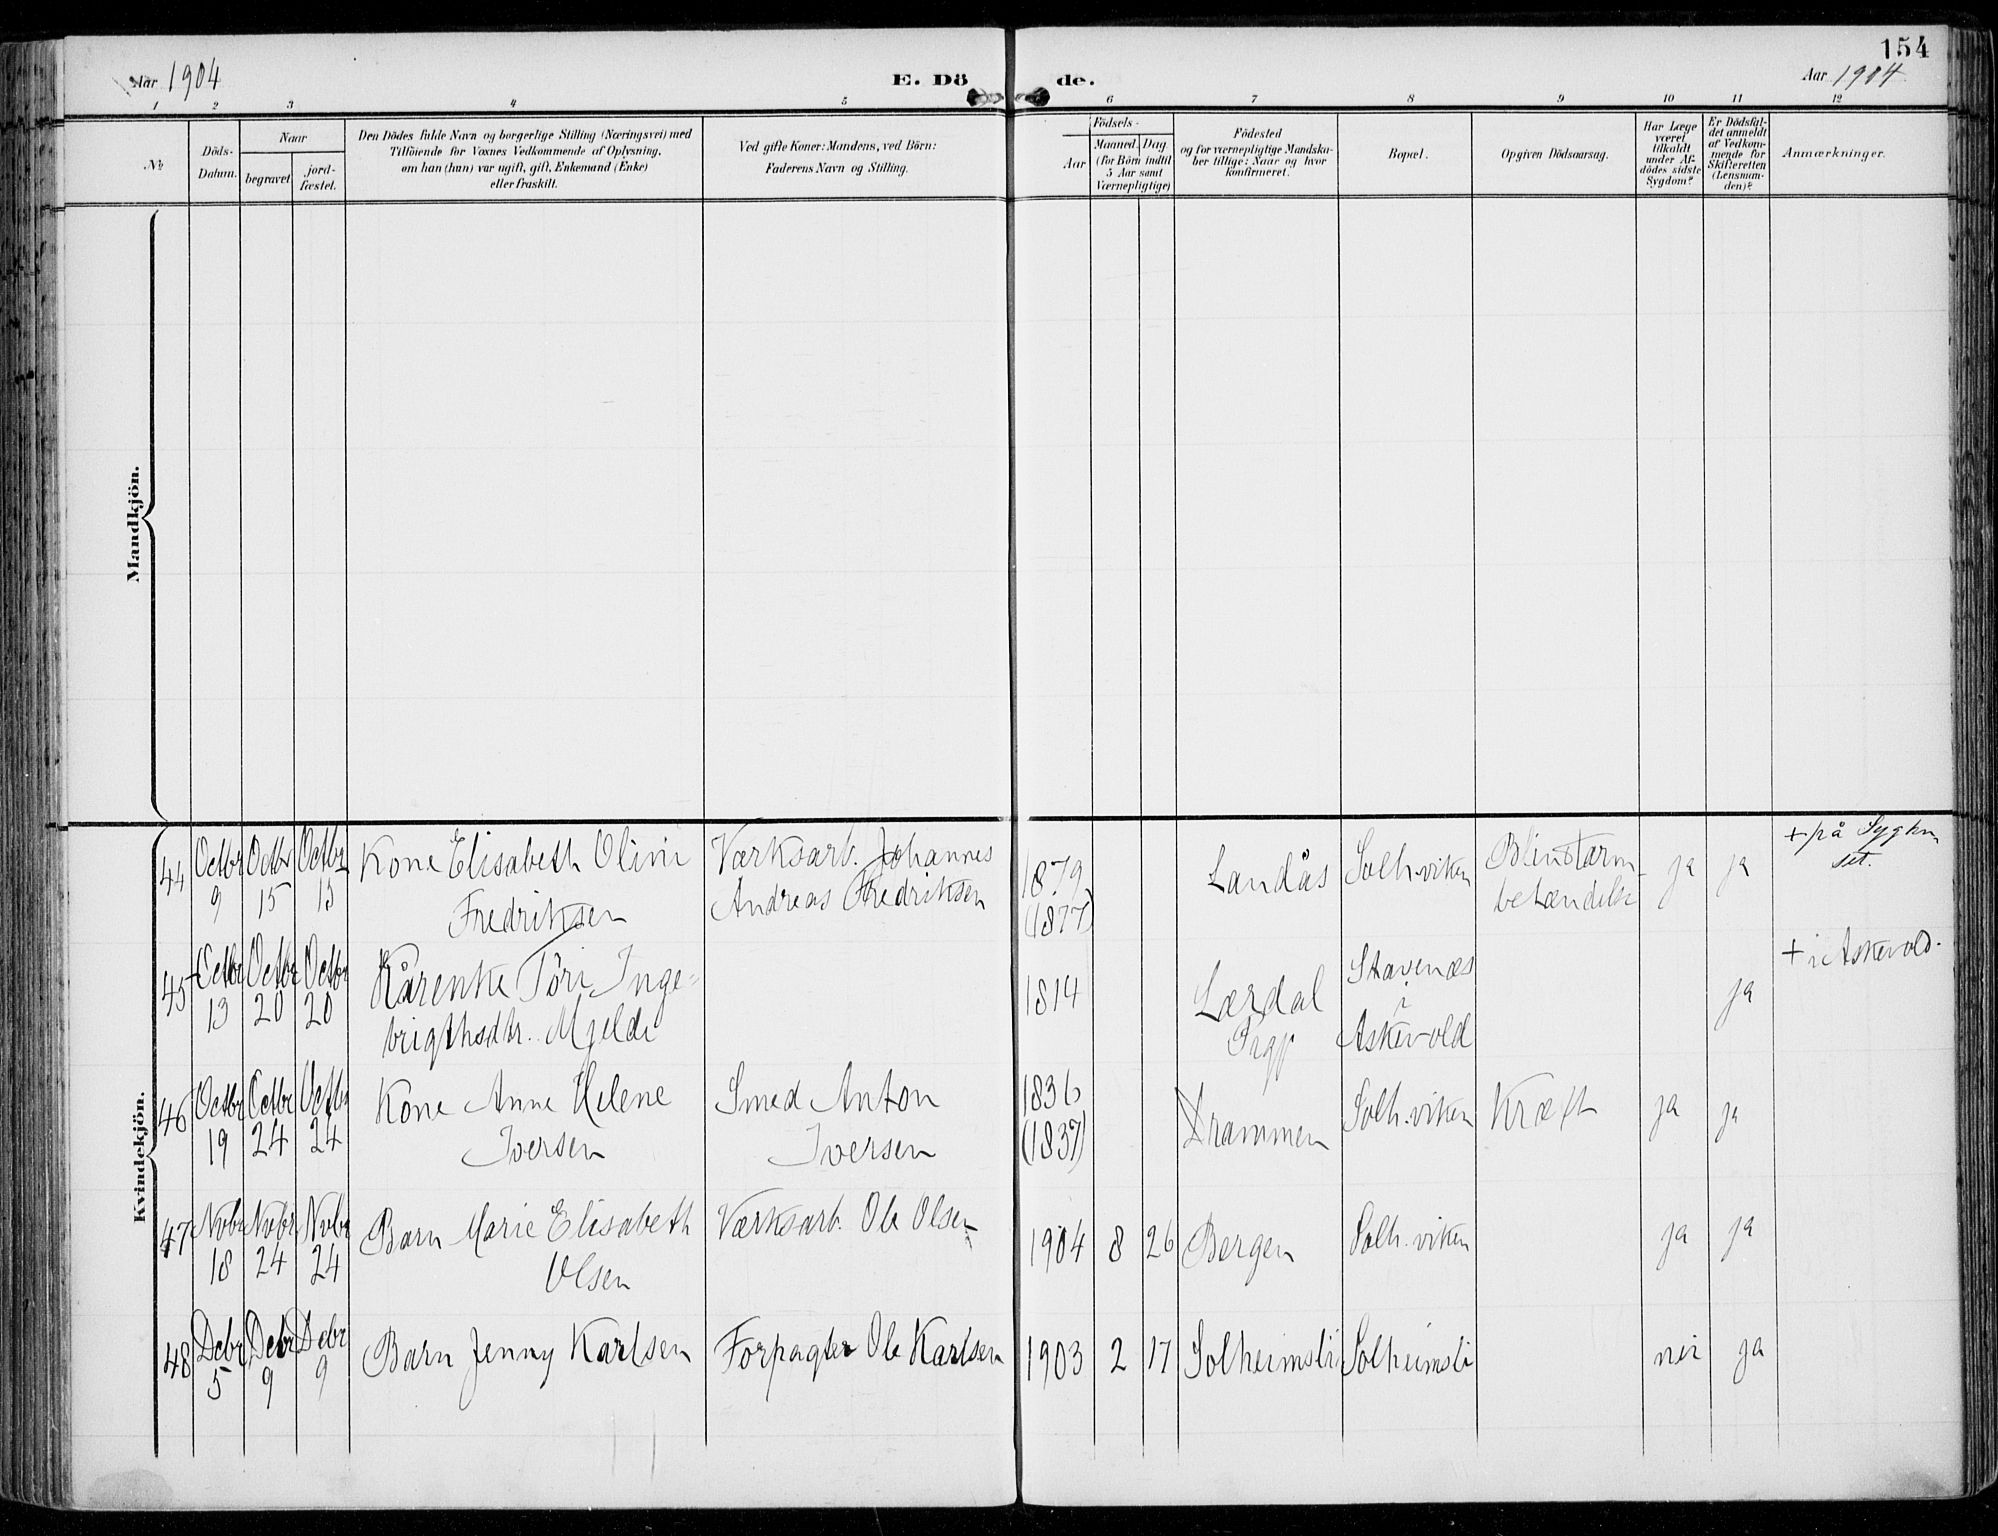 154
Aar 1904
E. Döde.
Aar 1904
1 2 3 4 5 6 7 8 9 10 11 12
No
Döds-
Datum.
Naar
begravet.
jord-
fæstet.
Den Dödes fulde Navn og borgerlige Stilling (Næringsvei) med
Tilföiende for Voxnes Vedkommende af Oplysning,
om han (hun) var ugift, gift, Enkemand (Enke)
eller fraskilt.
Ved gifte Koner: Mandens, ved Börn:
Faderens Navn og Stilling.
Födsels-
Aar
Maaned. Dag
(for Börn indtil
5 Aar samt
Værnepligtige)
Födested
og for værnepligtige Mandska-
ber tillige: Naar og hvor
konfirmeret.
Bopæl.
Opgiven Dödsaarsag.
Har Læge
været
tilkaldt
under Af-
dödes sidste
Sygdom?
Er Dödsfal-
det anmeldt
af Vedkom-
mende for
Skifteretten
(Lensman-
den)?
Anmærkninger.
Mandkjön.
Kvindekjön.
44 Octbr 9 Octbr 15 Octbr 15 Kone Elisabeth Olivi
Fredriksen
Værksarb. Johannes
Andreas Fredriksen
1879
(1877)
Landås Solh.viken Blindtarm-
betændelse ja ja + på Sygehu
set.
45 Octbr 13 Octbr 20 Octbr 20 Kårenke Töri Inge-
brigthsdtr. Mjelde
1814 Lærdal
Stavenæs
i
Askevold
ja + i Askevold.
46 Octbr 19 Octbr 24 Octbr 24 Kone Anne Helene
Iversen
Smed Anton
Iversen
1836
(1837)
Drammen Solh.viken Kræft ja ja
47 Nvbr 18 Nvbr 24 Nvbr 24 Barn Marie Elisabeth
Olsen
Værksarb. Ole Olsen
1904 8 26 Bergen Solh.viken ja ja
48 Debr 5 Debr 9 Debr 9 Barn Jenny Karlsen Forpagter Ole Karlsen 1903 2 17 Solheimsli Solheimsli nei ja